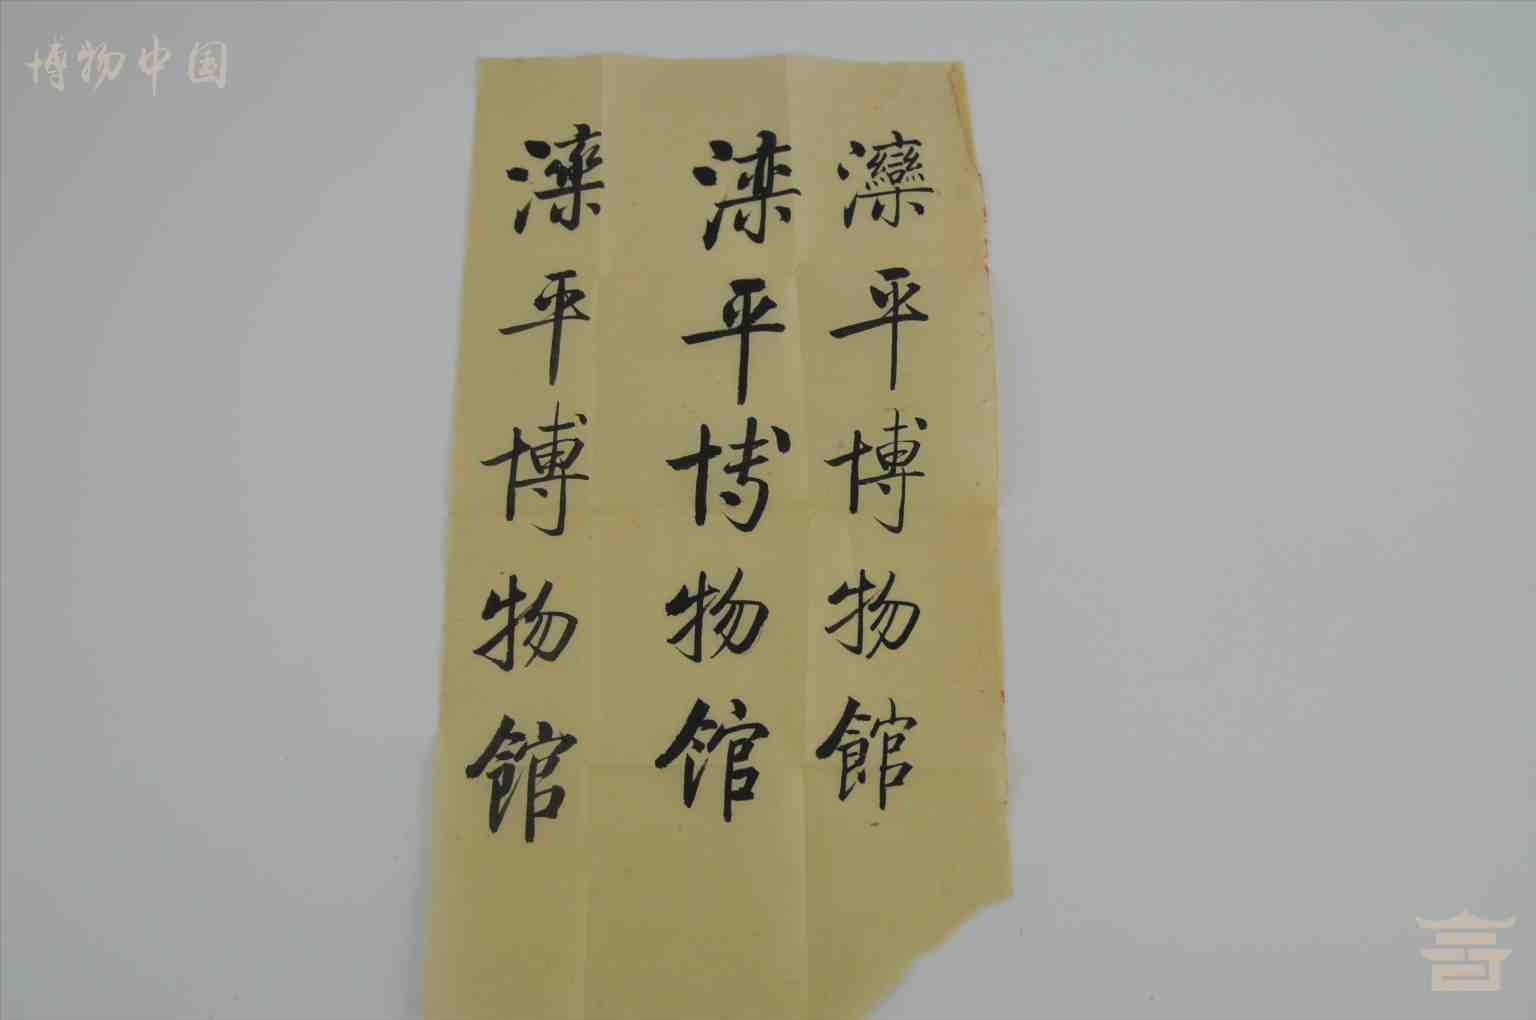 博物中国
灤平博物館
滦平博物馆
灤平博物館